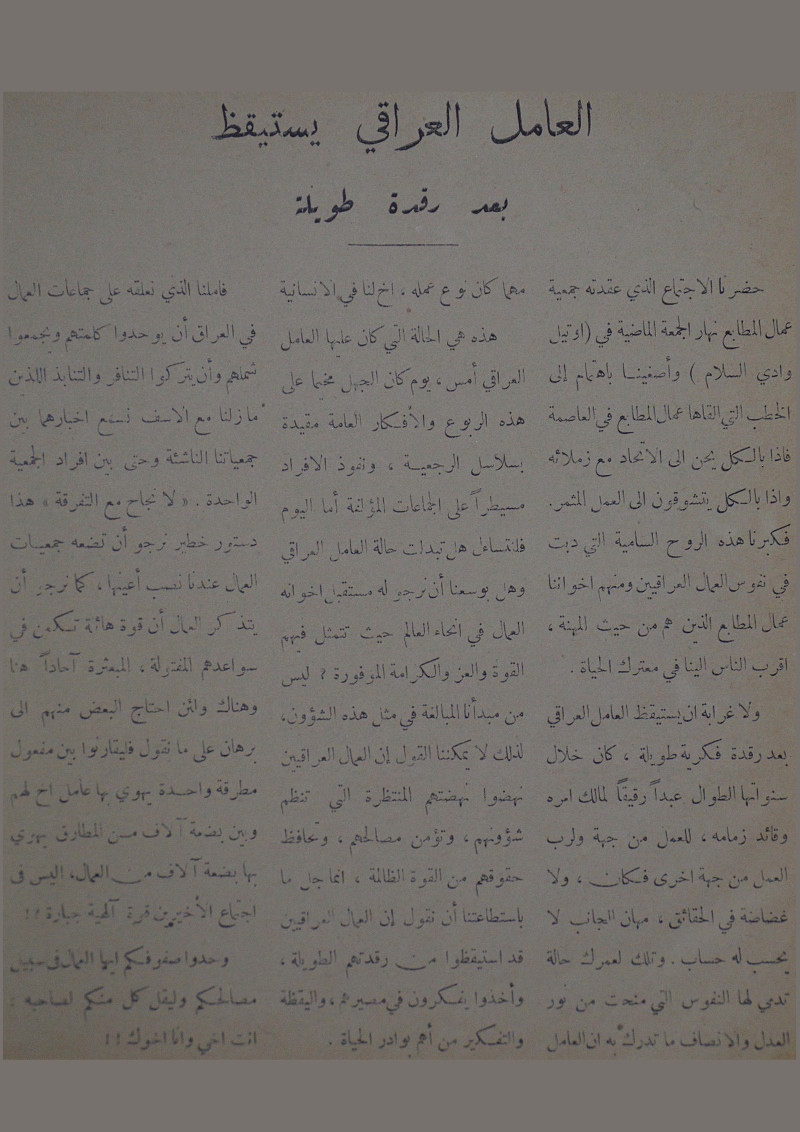 العامل العراقي يستيقظ
بعد رقدة طويلة
حضرنا الاجتماع الذي عقدته جمعية
عمال المطابع نهار الجمعة الماضية في (اوتيل
وادي السلام) وأصغينا باهتمام إلى
الخطب التي القاها عمال المطابع في العاصمة
فاذا بالكل يحن الى الاتحاد مع زملائه
واذا بالكل يتشوقون الى العمل المثمر.
فكبرنا هذه الروح السامية التي دبت
في نفوس العمال العراقيين ومنهم اخواننا
عمال المطابع الذين هم من حيث المهنة ،
اقرب الناس الينا في معترك الحياة .
ولا غرابة ان يستيقظ العامل العراقي
بعد رقدة فكرية طويلة ، كان خلال
سنواتها الطوال عبداً رقيقاً لمالك امره
وقائد زمامه ، للعمل من جهة ولرب
العمل من جهة اخرى فكان ، ولا
غضاضة في الحقائق ، مهان الجانب لا
يحسب له حساب . وتلك لعمرك حالة
تدمي لها النفوس التي منحت من نور
العدل والانصاف ما تدرك به ان العامل
مهما كان نوع عمله ، اخ لنا في الانسانية
هذه هي الحالة التي كان عليها العامل
العراقي أمس ، يوم كان الجهل مخيما على
هذه الربوع والأفكار العامة مقيدة
بسلاسل الرجعية ، ونفوذ الافراد
مسيطراً على الجماعات المؤلفة أما اليوم
فلنتساءل هل تبدلت حالة العامل العراقي
وهل بوسعنا أن نرجو له مستقبل اخوانه
العمال في انحاء العالم حيث تتمثل فيهم
القوة والعز والكرامة الموفورة ؟ ليس
من مبدأنا المبالغة في مثل هذه الشؤون،
لذلك لا يمكننا القول إن العمال العراقيين
نهضوا نهضتهم المنتظرة التي تنظم
شؤونهم ، وتؤمن مصالحهم ، وتحافظ
حقوقهم من القوة الظالمة ، انما جل ما
باستطاعتنا أن نقول إن العمال العراقيين
قد استيقظوا من رقدتهم الطويلة ،
وأخذوا يفكرون في مصيرهم ، واليقظة
والتفكير من أهم بوادر الحياة .
فاملنا الذي نعلقه على جماعات العمال
في العراق أن يوحدوا كلمتهم ويجمعوا
شملهم وأن يتركوا التنافر والتنابذ اللذين
ما زلنا مع الاسف نسمع اخبارهما بين
جمعياتنا الناشئة وحتى بين افراد الجمعية
الواحدة . « لا نجاح مع التفرقة » هذا
دستور خطير نرجو أن تضعه جمعيات
العمال عندنا نصب أعينها ، كما نرجو أن
يتذكر العمال أن قوة هائلة تكمن في
سواعدهم المفتولة ، المبعثرة آحاداً هنا
وهناك ولئن احتاج البعض منهم الى
برهان على ما نقول فليقارنوا بين مفعول
مطرقة واحدة يهوي بها عامل اخ لهم
وبين بضعة آلاف من المطارق يهوي
بها بضعة آلاف من العمال. اليس في
اجتماع الأخيرين قوة آلهية جبارة !!
وحدوا صفوفكم ايها العمال في سبيل
مصالحكم وليقل كل منكم لصاحبه :
انت اخي وانا اخوك !!